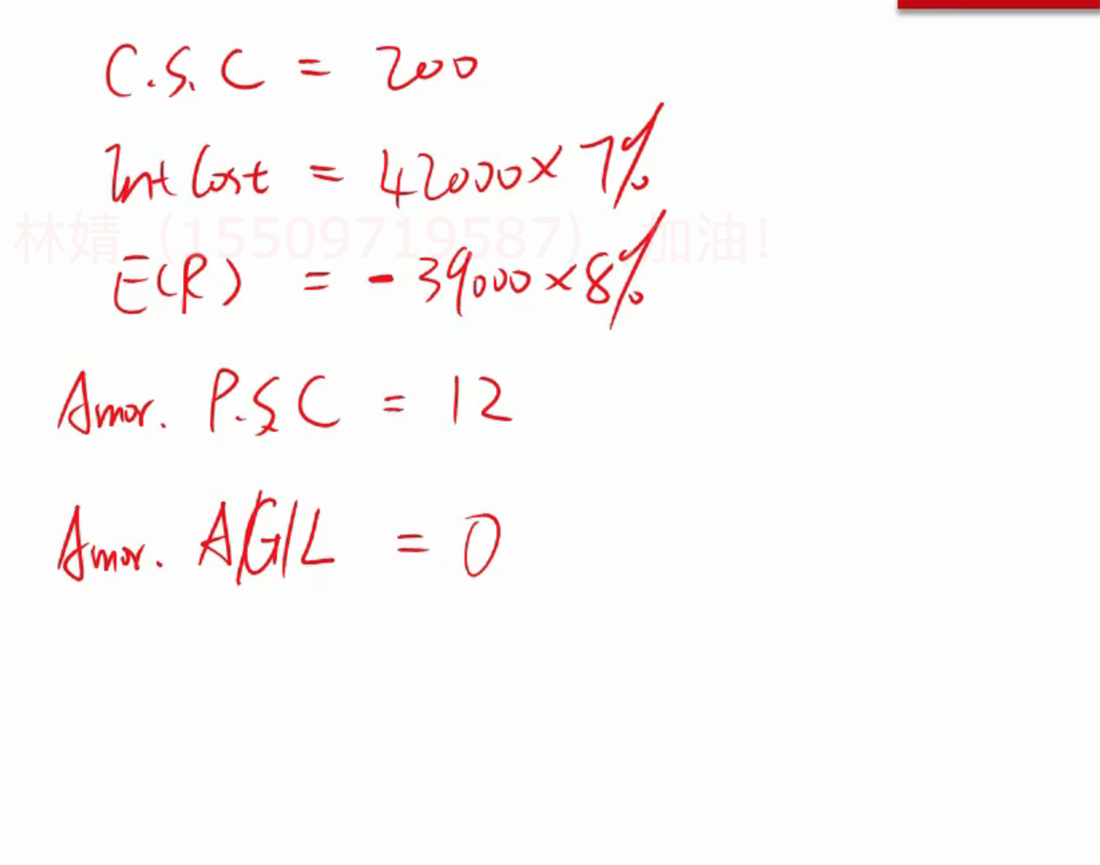 C.S.C = 200
Int Cost = 42000 × 7%
林婧（15509719587），加油！
E(R) = - 39000 × 8%
Amor. P.S.C = 12
Amor. AG/L = 0